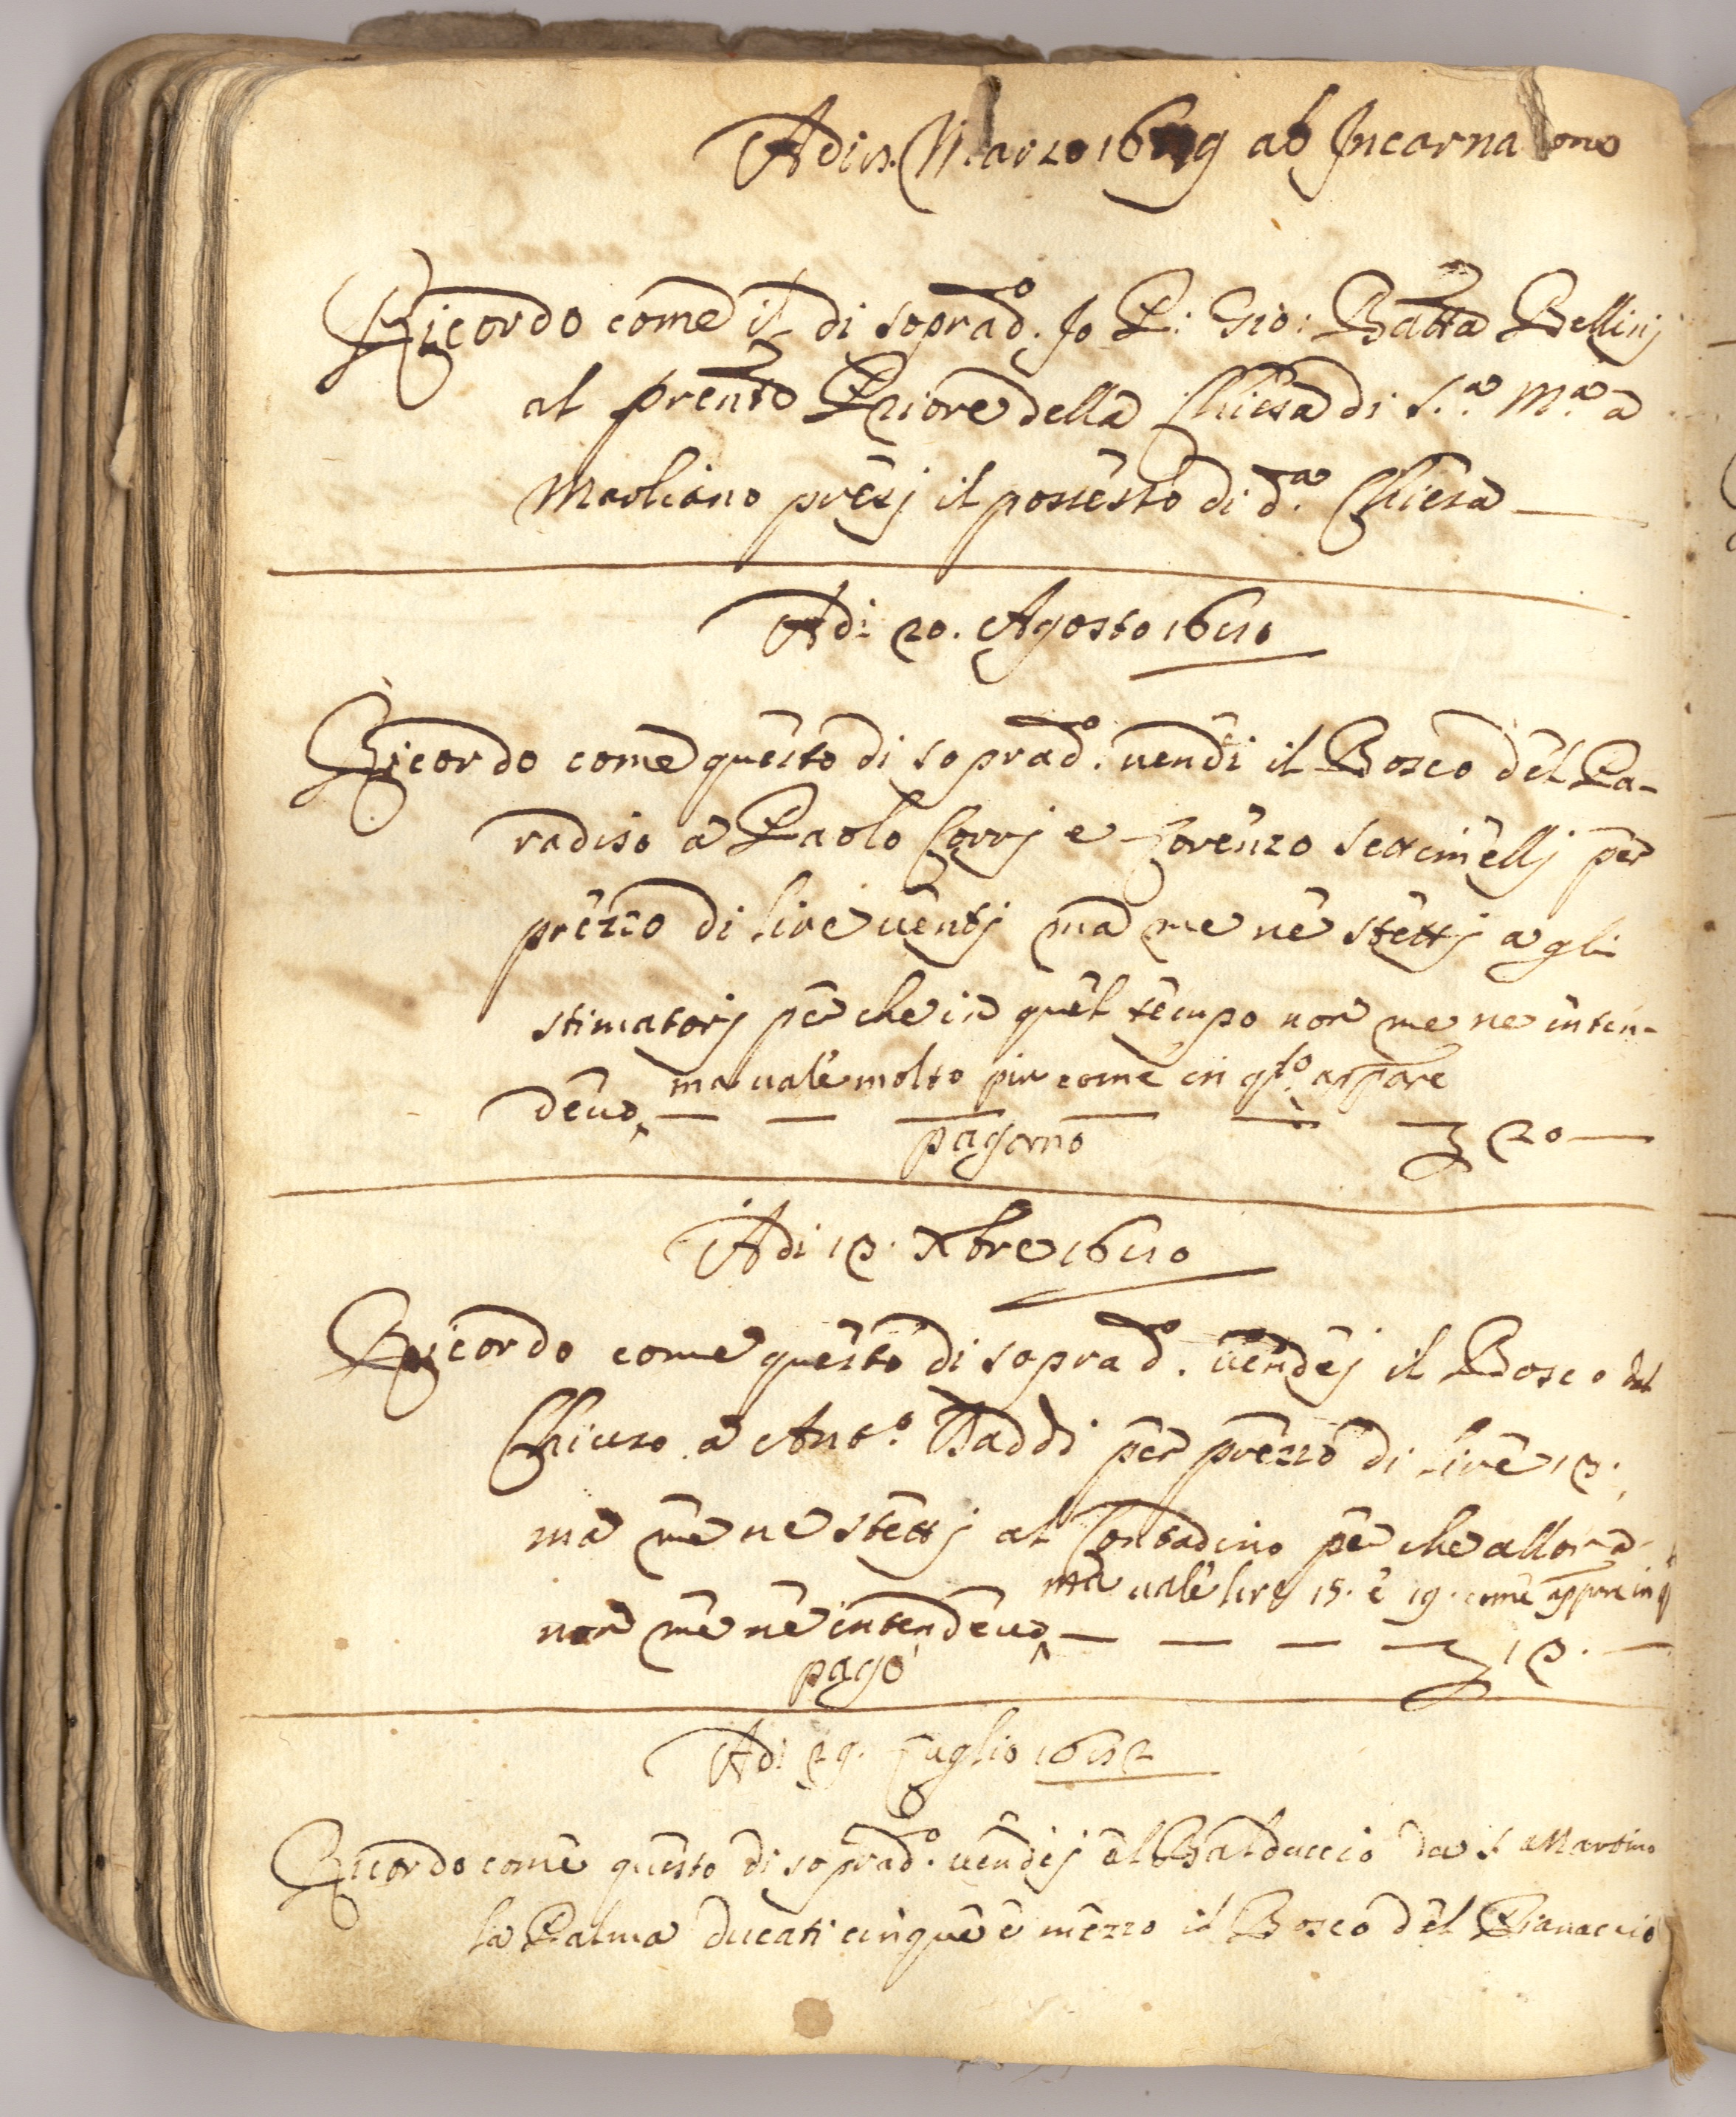 Adi 13. Marzo 1649 ab Incarnatione
Ricordo come il di soprad.o Jo P: Gio: Batta Bellinj
al prente Priore della Chiesa di S.a M.a a
Maoliano presj il possesso di d.a Chiesa
Adi 20. Agosto 1650
Ricordo come questo di soprad.o uendei il Bosco del Pa-
radiso a Paolo Corrj e Lorenzo Settimellj per
prezzo di lire uentj ma me ne stettj a gli
stimatorj perche in quel tempo non me ne inten-
ma uale molto piu come in q.sto appare
deuo 20
pagorno
Adi 12. Xbre 1650
Ricordo come questo di soprad.o uendej il Bosco del
Chiuso a Ant.o Taddi per prezzo di lire 12.
ma me ne stettj al Contadino perche allora
ma uale lire 15. e 19. come appare in q
non me ne intendeuo 12.
pagò
Adi 29. Luglio 1652
Ricordo come questo di soprad.o uendej al Balduccio da S. Martino
la Palma ducati cinque e mezzo il Bosco del Pianaccio